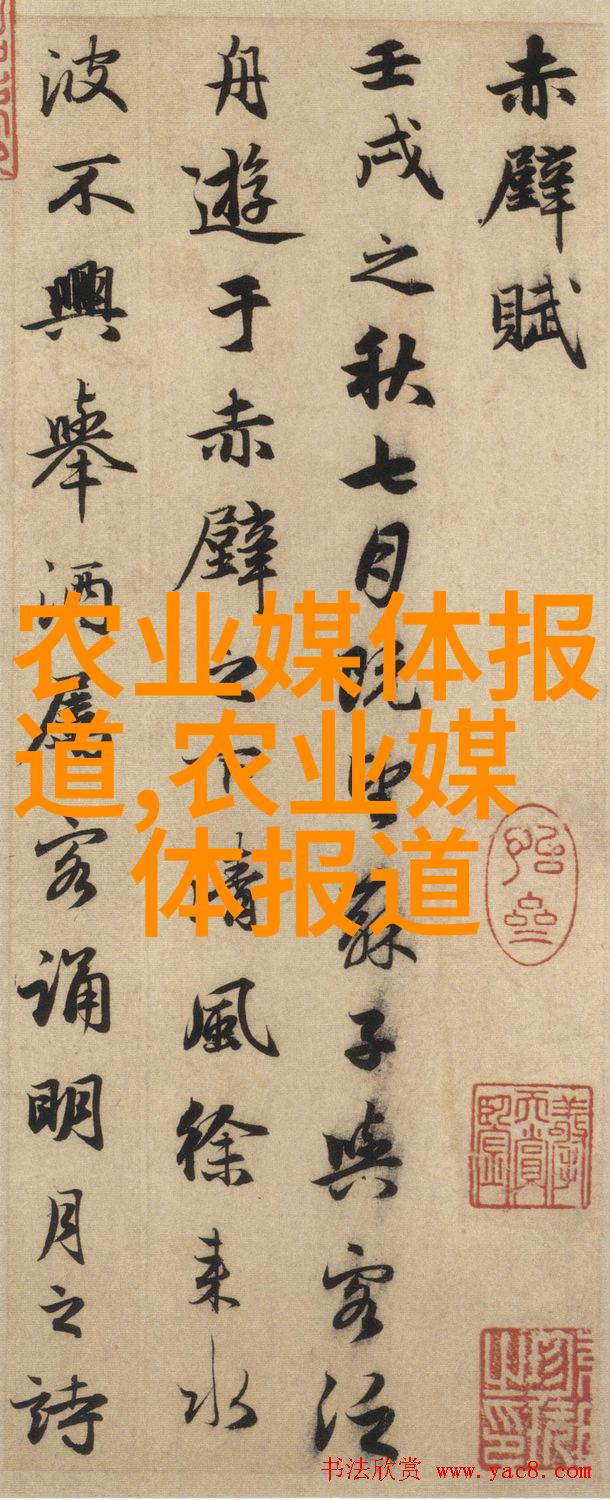 赤壁賦
壬戌之秋七月既望蘇子與客泛
舟遊于赤壁之下清風徐来水
波不興舉酒屬客誦明月之詩
农业媒体报
道,农业媒
体报道
书法欣赏 www.yac8.com